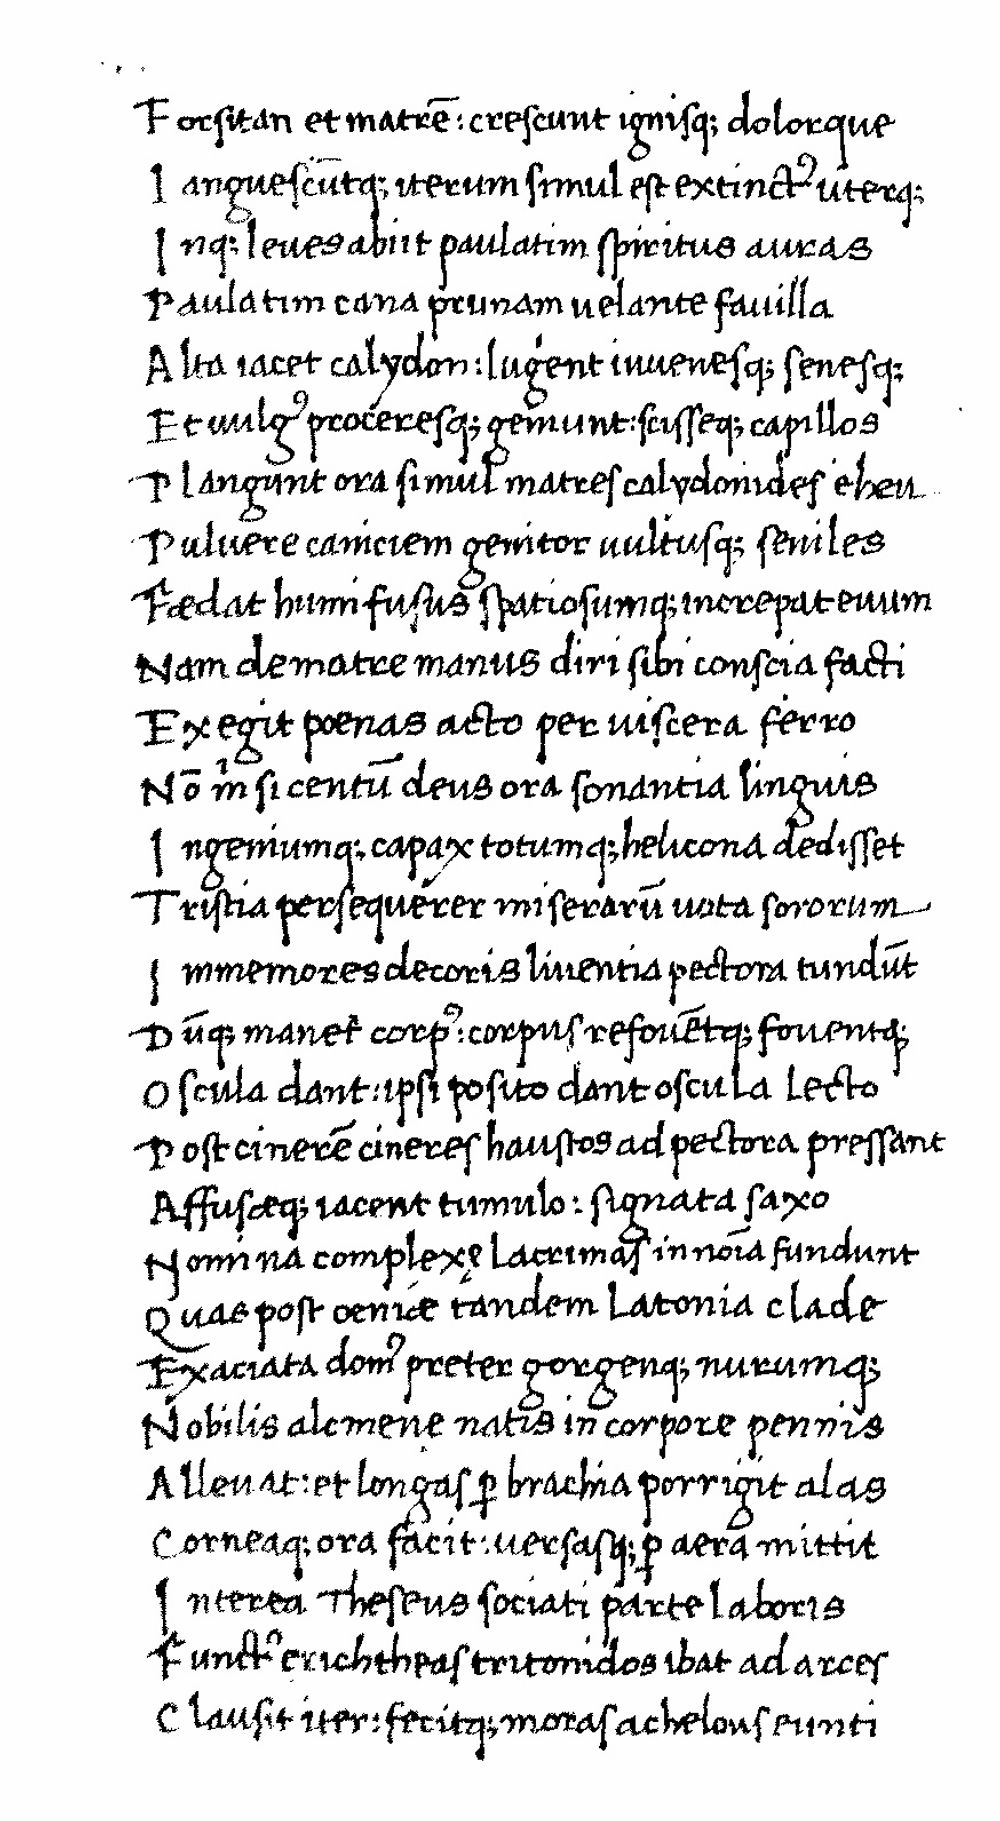 Forsitan et matrē: crescunt ignisq; dolorque
Languescūtq; iterum simul est extinctꝰ uterq;
Inq; leues abiit paulatim spiritus auras
Paulatim cana prunam uelante fauilla
Alta iacet calydon: lugent iuuenesq; senesq;
Et uulgꝰ proceresq; gemunt: scisseq; capillos
Plangunt ora simul matres calydonides eheu
Puluere caniciem genitor uultusq; seniles
Fædat humi fusus spatiosumq; increpat euum
Nam de matre manus diri sibi conscia facti
Exegit poenas acto per uiscera ferro
Nō m si centū deus ora sonantia linguis
Ingeniumq; capax totumq; helicona dedisset
Tristia persequerer miserarū uota sororum
Immemores decoris liuentia pectora tundūt
Dūq; manet corpꝰ: corpus refouētq; fouentq;
Oscula dant: ipsi posito dant oscula lecto
Post cinerē cineres haustos ad pectora pressant
Affusæq; iacent tumulo: signata saxo
Nomina complexę lacrimas in noīa fundunt
Quas post oenidæ tandem Latonia clade
Exaciata domꝰ preter gorgenq; nurumq;
Nobilis alcmenę natis in corpore pennis
Alleuat: et longas ꝑ brachia porrigit alas
Corneaq; ora facit: uersasq; ꝑ aera mittit
Interea Theseus sociati parte laboris
Functꝰ erichtheas tritonidos ibat ad arces
Clausit iter: fecitq; moras achelous eunti